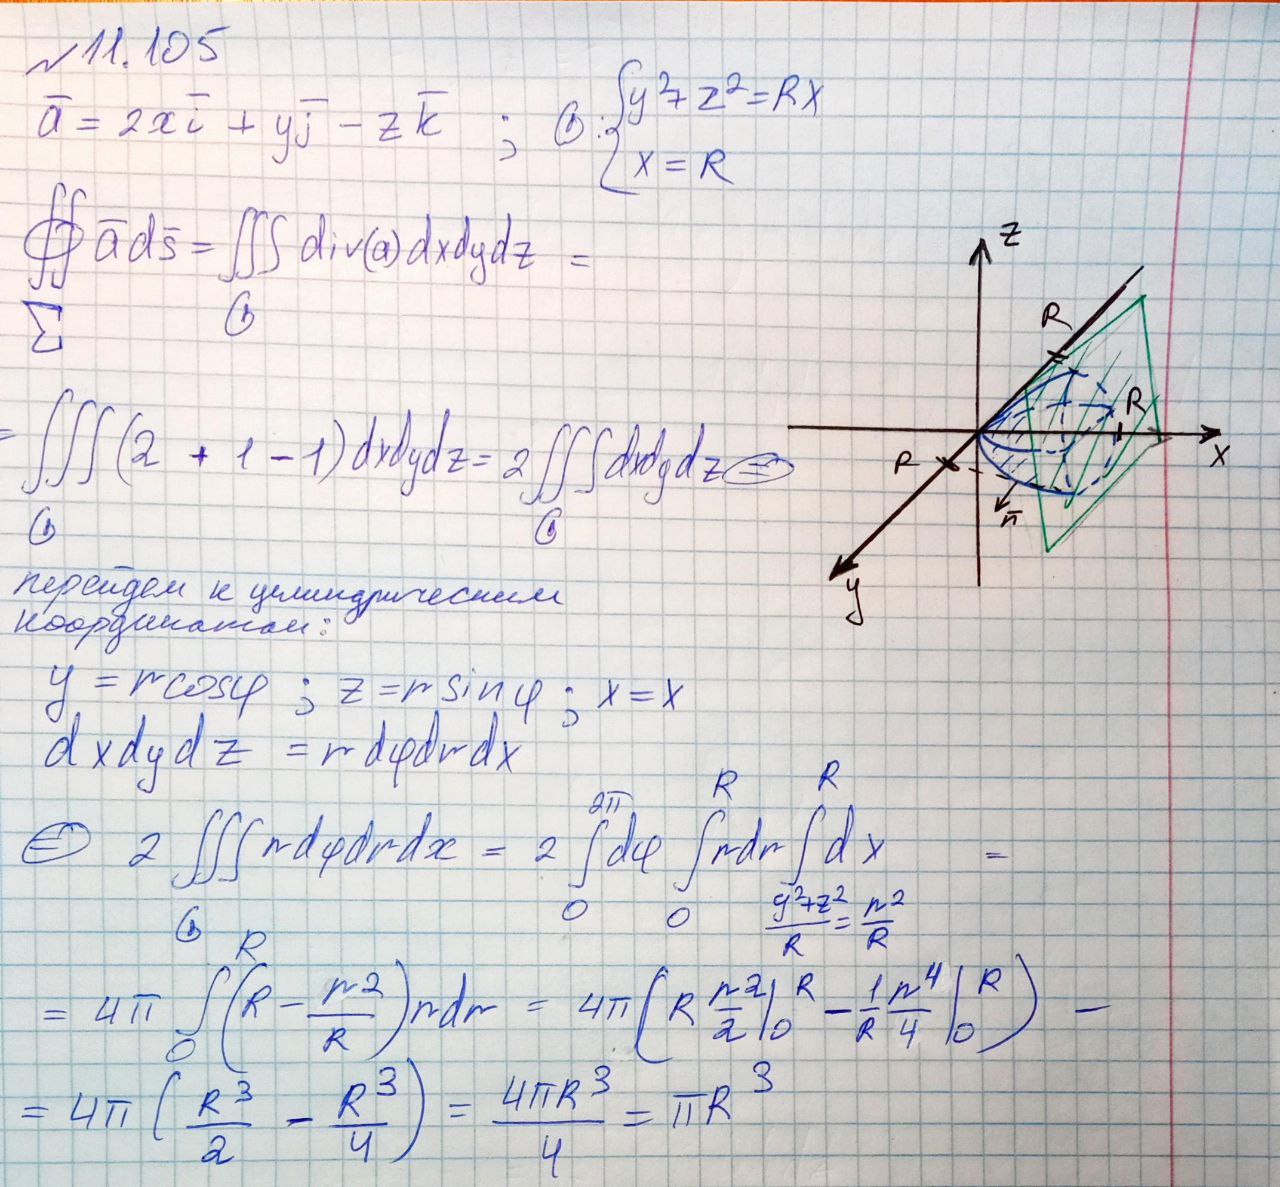 №11.105
a̅ = 2xi̅ + yj̅ − zk̅ ; G: { y² + z² = Rx
x = R
∯ a̅ds̅ = ∭ div(a)dxdydz =
Σ G
= ∭ (2 + 1 − 1)dxdydz = 2∭dxdydz =
G G
z
R
R
x
R
n̅
y
перейдем к цилиндрическим
координатам:
y = r cosφ ; z = r sinφ ; x = x
dxdydz = r dφdrdx
2π R R
= 2 ∭ rdφdrdx = 2 ∫dφ ∫rdr ∫dx =
G 0 0 (y²+z²)/R = r²/R
= 4π ∫₀ᴿ (R − r²/R) rdr = 4π (R r²/2 |₀ᴿ − 1/R r⁴/4 |₀ᴿ) −
= 4π (R³/2 − R³/4) = 4πR³/4 = πR³